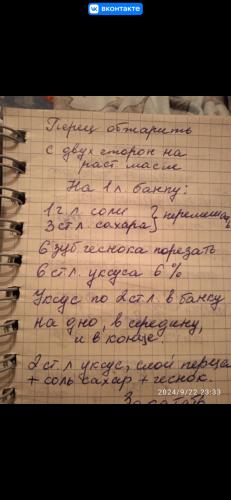 вконтакте
Перец обжарить
с двух сторон на
раст. масле
На 1 л банку:
1 ч.л. соли } перемешать
3 ст.л. сахара
6 зуб чеснока порезать
6 ст.л. уксуса 6%
Уксус по 2 ст.л. в банку
на дно, в середину,
и в конце.
2 ст.л уксус, слой перца
+ соль сахар + чеснок.
2024/9/22 23:33
Закатать